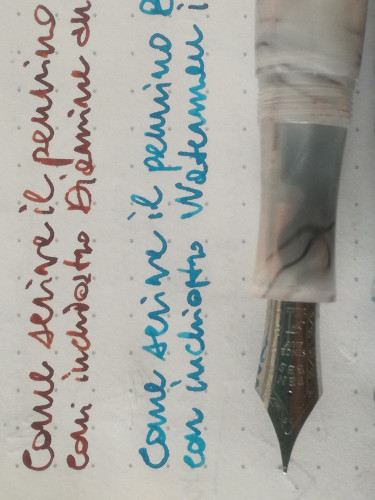 Come scrive il pennino
con inchiostro Diamine
Come scrive il pennino
con inchiostro Waterman